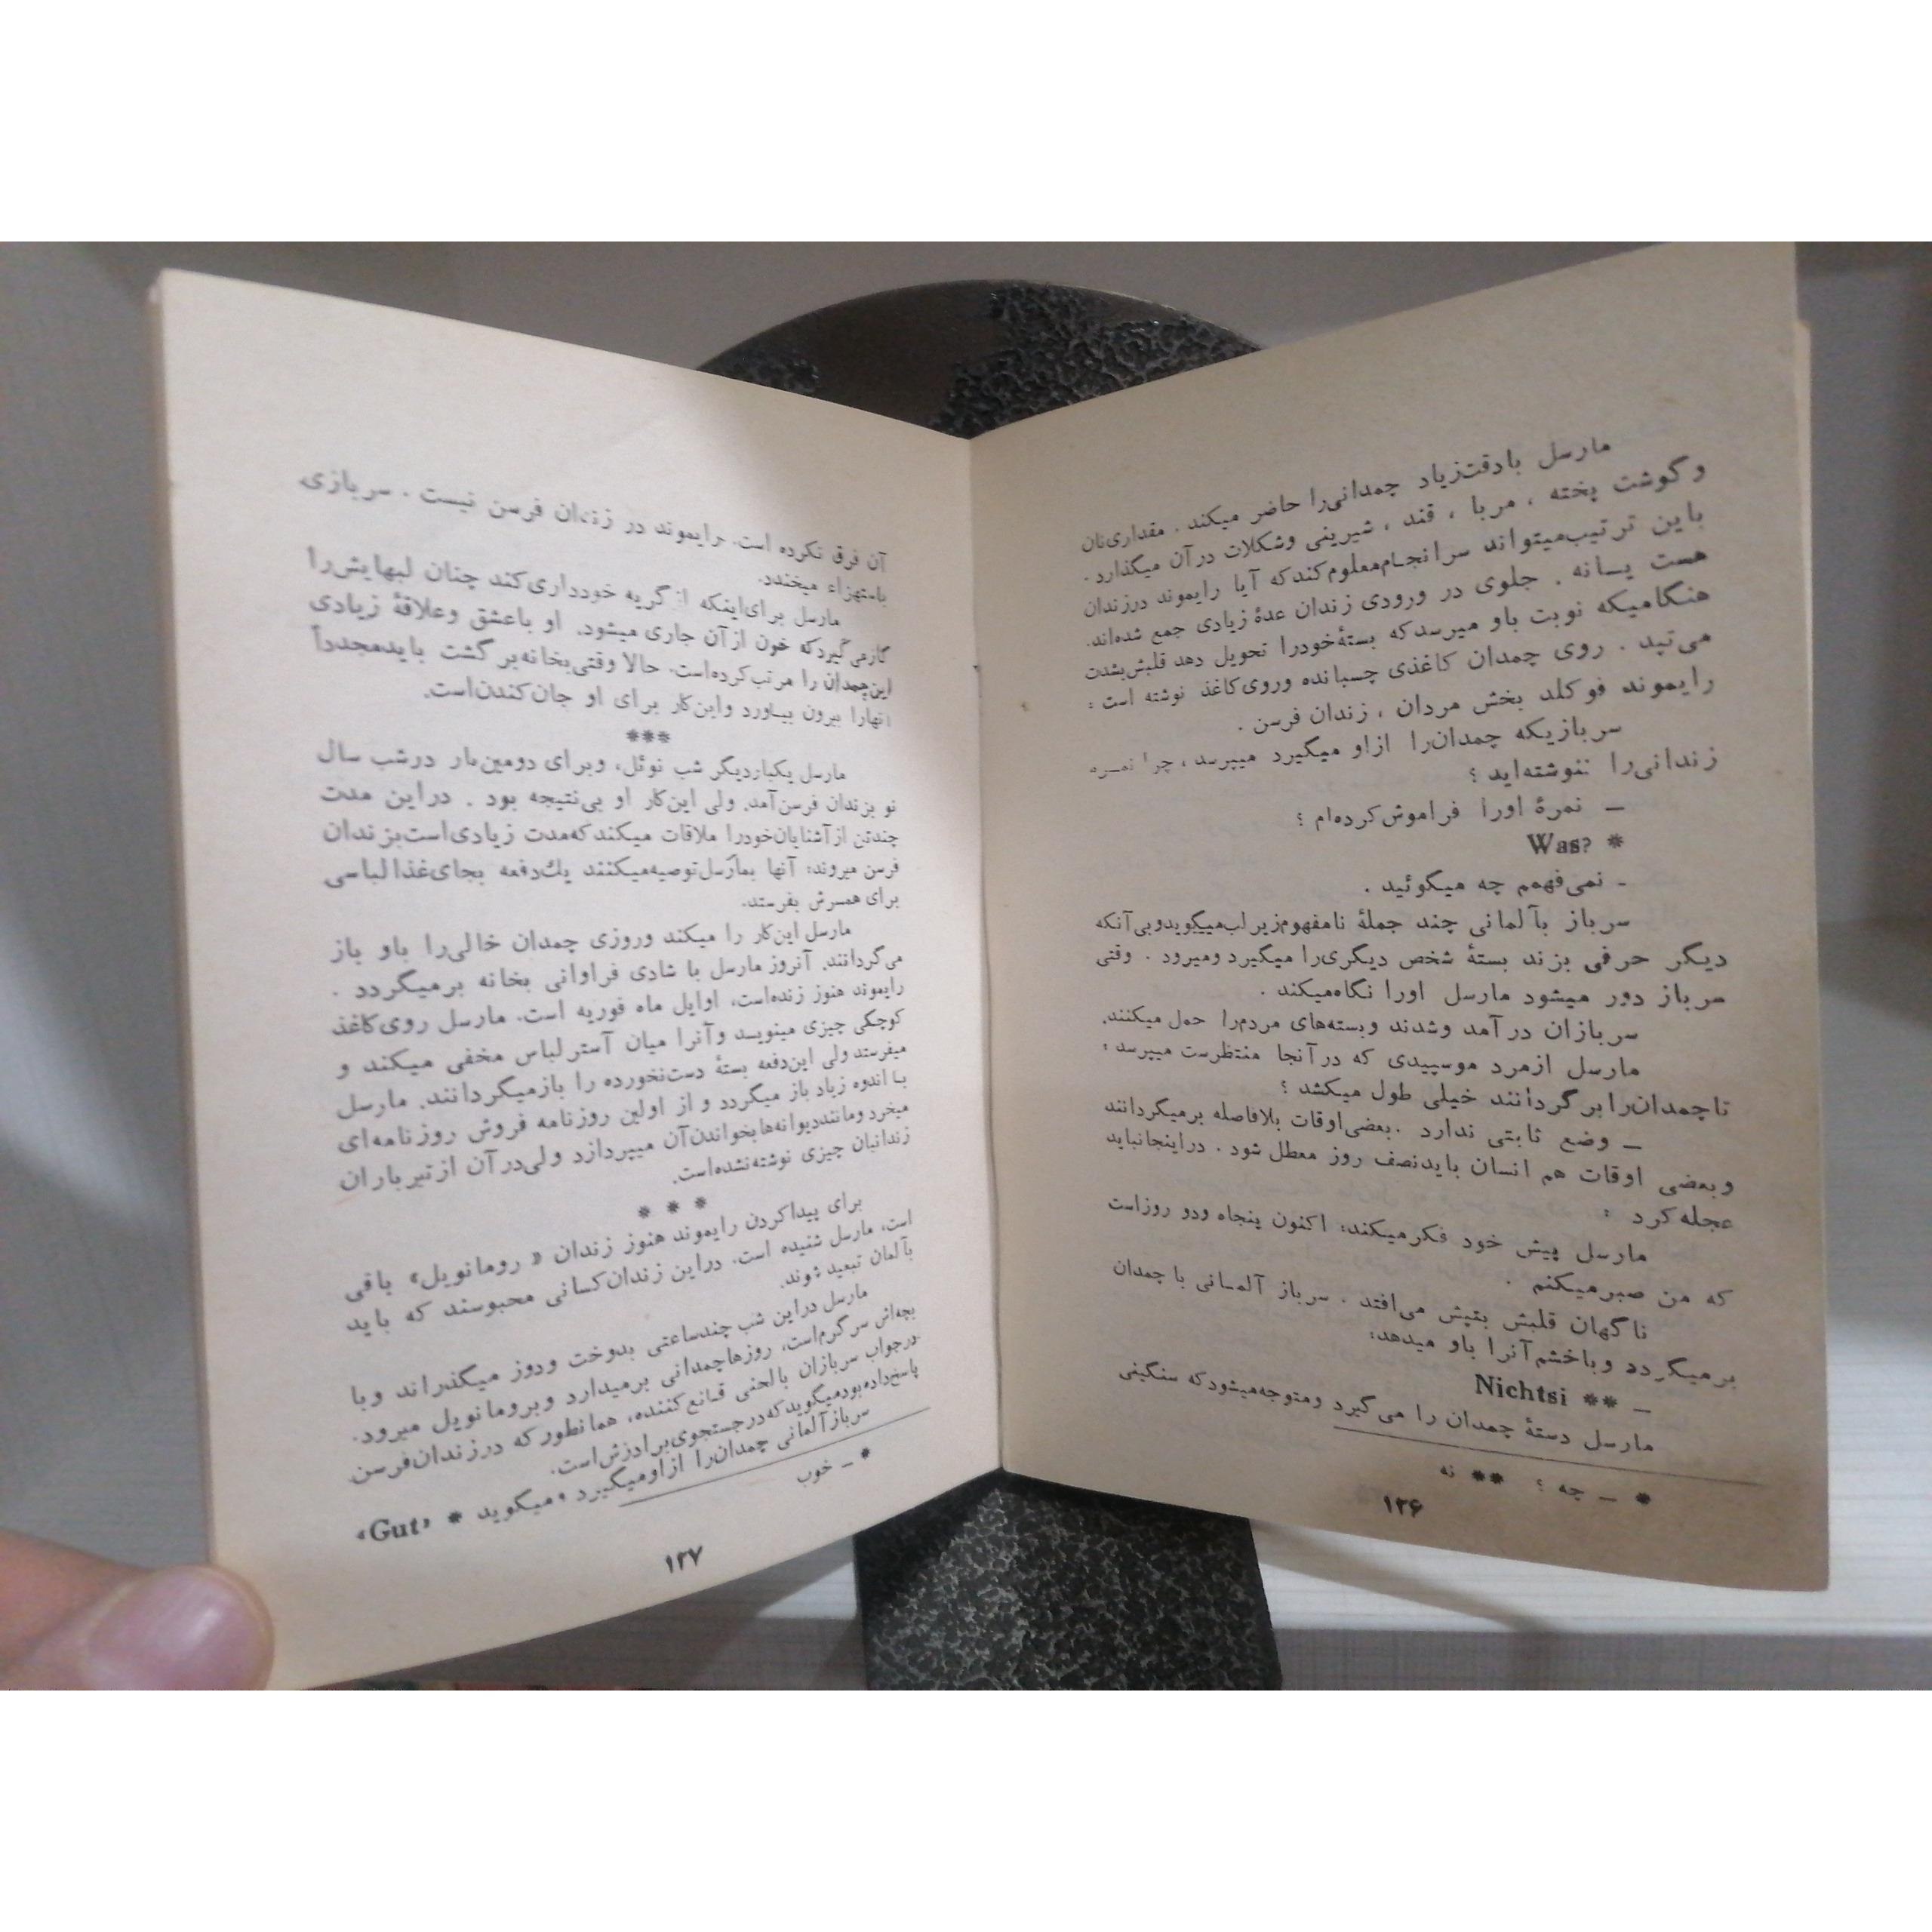 مارسل بادقت‌زیاد چمدانی‌را حاضر میکند . مقداری‌نان
وگوشت پخته ، مربا ، قند ، شیرینی وشکلات درآن میگذارد .
باین ترتیب‌میتواند سرانجام‌معلوم‌کندکه آیا رایموند درزندان
هست یـانه . جلوی در ورودی زندان عدهٔ زیادی جمع شده‌اند.
هنگامیکه نوبت باو میرسدکه بستهٔ‌خودرا تحویل دهد قلبش‌بشدت
می‌تپد . روی چمدان کاغذی چسبانده وروی‌کاغذ نوشته است :
رایموند فوکلد بخش مردان ، زندان فرسن .
سربازیکه چمدان‌را ازاو میگیرد میپرسد ، چرا نمـره
زندانی‌را ننوشته‌اید ؟
ــ نمرهٔ اورا فراموش‌کرده‌ام ؟
* Was?
ـ نمی‌فهمم چه میگوئید .
سرباز بآلمانی چند جملهٔ نامفهوم‌زیرلب‌میگویدوبی‌آنکه
دیگر حرفی بزند بستهٔ شخص دیگری‌را میگیرد ومیرود . وقتی
سرباز دور میشود مارسل اورا نگاه‌میکند .
سربازان درآمد وشدند وبسته‌های مردم‌را حمل میکنند.
مارسل ازمرد موسپیدی که درآنجا منتظرست میپرسد :
تاچمدان‌را برگردانند خیلی طول میکشد ؟
ــ وضع ثابتی ندارد .بعضی‌اوقات بلافاصله برمیگردانند
وبعضی اوقات هم انسان بایدنصف روز معطل شود . دراینجانباید
عجله‌کرد :
مارسل پیش خود فکرمیکند: اکنون پنجاه ودو روزاست
که من صبرمیکنم .
ناگهان قلبش بتپش می‌افتد . سرباز آلمـانی با چمدان
برمیگردد وباخشم‌آنرا باو میدهد:
ــ ** Nichtsi
مارسل دستهٔ چمدان را می‌گیرد ومتوجه‌میشودکه سنگینی
* ــ چه ؟ ** نه
۱۲۶
آن فرق نکرده است. رایموند در زندان فرسن نیست . سربازی
باستهزاء میخندد.
مارسل برای‌اینکه از گریه خودداری‌کند چنان لبهایش‌را
گازمی‌گیردکه خون ازآن جاری میشود. او باعشق وعلاقهٔ زیادی
این‌چمدان را مرتب‌کرده‌است. حالا وقتی‌بخانه‌برگشت بایدمجدداً
آنهارا بیرون بیـاورد واین‌کار برای او جان‌کندن‌است.
***
مارسل یکباردیگر شب نوئل، وبرای دومین‌بار درشب سال
نو بزندان فرسن‌آمد. ولی این‌کار او بی‌نتیجه بود . دراین مدت
چندتن ازآشنایان‌خودرا ملاقات میکندکه‌مدت زیادی‌است‌بزندان
فرسن میروند: آنها بمارسل‌توصیه‌میکنند یك‌دفعه بجای‌غذالباسی
برای همسرش بفرستد.
مارسل این‌کار را میکند وروزی چمدان خالی‌را باو باز
می‌گردانند. آنروز مارسل با شادی فراوانی بخانه برمیگردد .
رایموند هنوز زنده‌است، اوایل ماه فوریه است. مارسل روی‌کاغذ
کوچکی چیزی مینویسد وآنرا میان آسترلباس مخفی میکند و
میفرستد ولی این‌دفعه بستهٔ دست‌نخورده را بازمیگردانند. مارسل
بـا اندوه زیاد باز میگردد و از اولین روزنامه فروش روزنامه‌ای
میخرد ومانند‌دیوانه‌ها بخواندن‌آن میپردازد ولی‌درآن ازتیرباران
زندانیان چیزی نوشته‌نشده‌است.
* * *
برای پیداکردن رایموند هنوز زندان « رومانویل» باقی
است، مارسل شنیده است. دراین زندان‌کسانی محبوسند که باید
بآلمان تبعید شوند.
مارسل دراین شب چندساعتی بدوخت ودوز میگذراند وبا
بچه‌اش سرگرم‌است، روزهاچمدانی برمیدارد وبرومانویل میرود.
درجواب سربازان بالحنی قـانع‌کننده، همانطورکه درزندان‌فرسن
پاسخ‌داده‌بودمیگویدکه‌درجستجوی‌برادرش‌است.
سربازآلمانی چمدان‌را ازاومیگیرد ومیگوید * «Gut»
* ــ خوب
۱۲۷